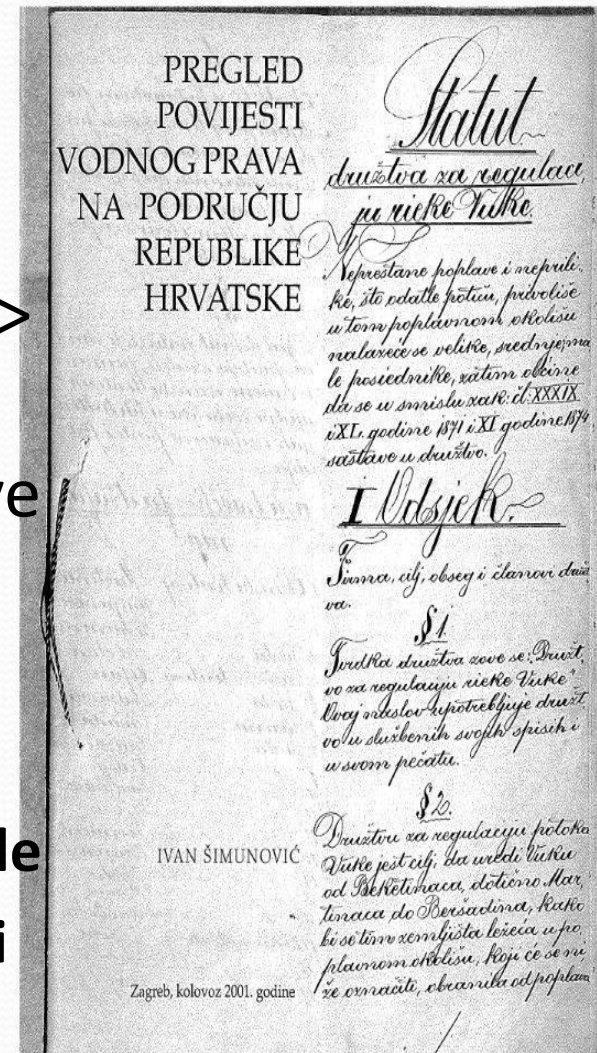 PREGLED
POVIJESTI
VODNOG PRAVA
NA PODRUČJU
REPUBLIKE
HRVATSKE
>
ve
de
i
IVAN ŠIMUNOVIĆ
Zagreb, kolovoz 2001. godine
Statut
družtva za regulaci
ju rieke Vuke.
Neprestane poplave i neprili
ke, što odatle potiču, privoliše
u tom poplavnom okolišu
nalazeće se velike, srednje, ma
le posiednike, zatim obćine
da se u smislu zak: čl. XXXIX
i XL. godine 1871 i XI godine 1874
sastave u družtvo.
I Odsjek.
Firma, cilj, obseg i članovi družt
va.
§ 1.
Tvrdka družtva zove se: "Družt
vo za regulaciju rieke Vuke"
Ovaj naslov upotrebljuje družt
vo u službenih svojih spisih i
u svom pečatu.
§ 2.
Družtvu za regulaciju potoka
Vuke jest cilj, da uredi Vuku
od Beketinaca, dotično Mar,
tinaca do Beršadina, kako
bi se tim zemljišta ležeća u po
plavnom okolišu, koji će se ni
že označiti, obranila od poplava